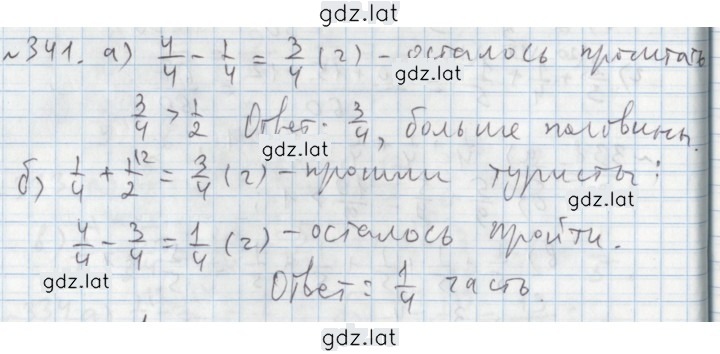 gdz.lat
№341. а) 4/4 - 1/4 = 3/4 (г) - осталось прочитать
gdz.lat
3/4 > 1/2 Ответ: 3/4, больше половины.
gdz.lat
б) 1/4 + 1/2 \2 = 3/4 (г) - прошли туристы:
gdz.lat
4/4 - 3/4 = 1/4 (г) - осталось пройти.
gdz.lat
Ответ: 1/4 часть.
gdz.lat